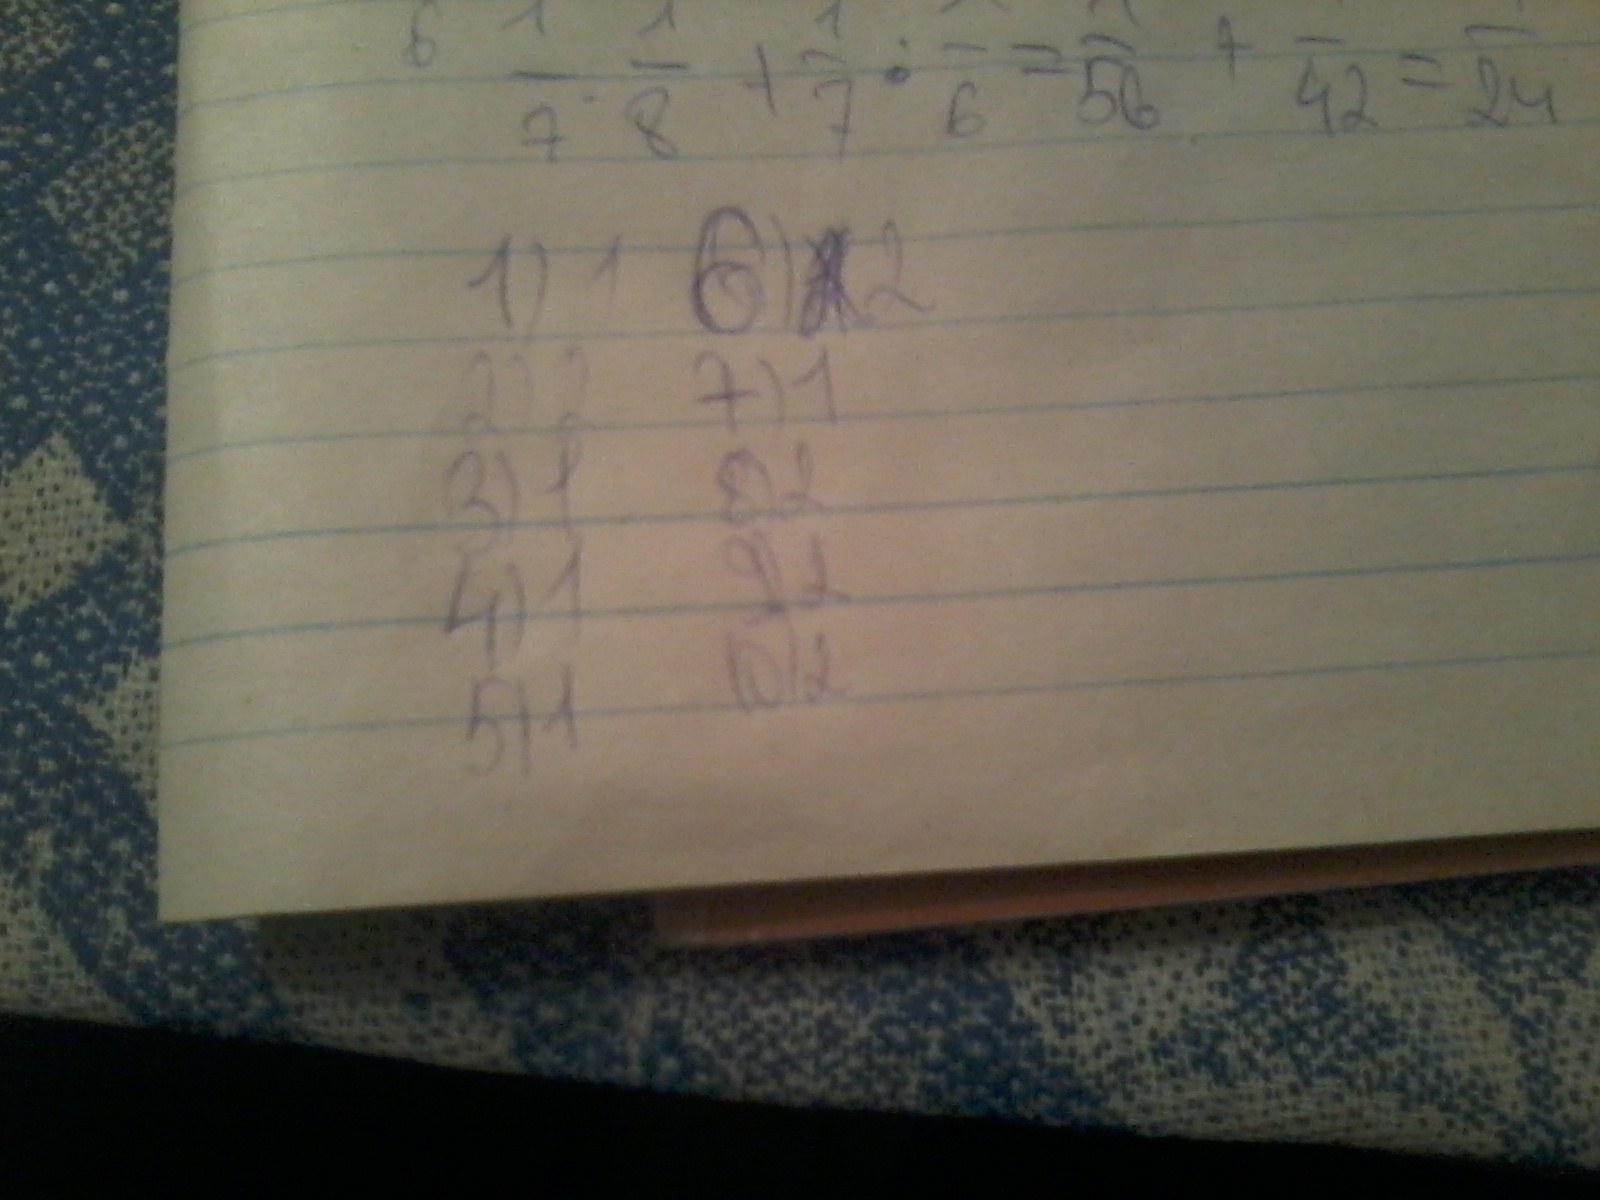 6 1/7 · 1/8 + 1/7 · 1/6 = 1/56 + 1/42 = 1/24
1) 1 6) 2
2) 2 7) 1
3) 1 8) 2
4) 1 9) 2
5) 1 10) 2